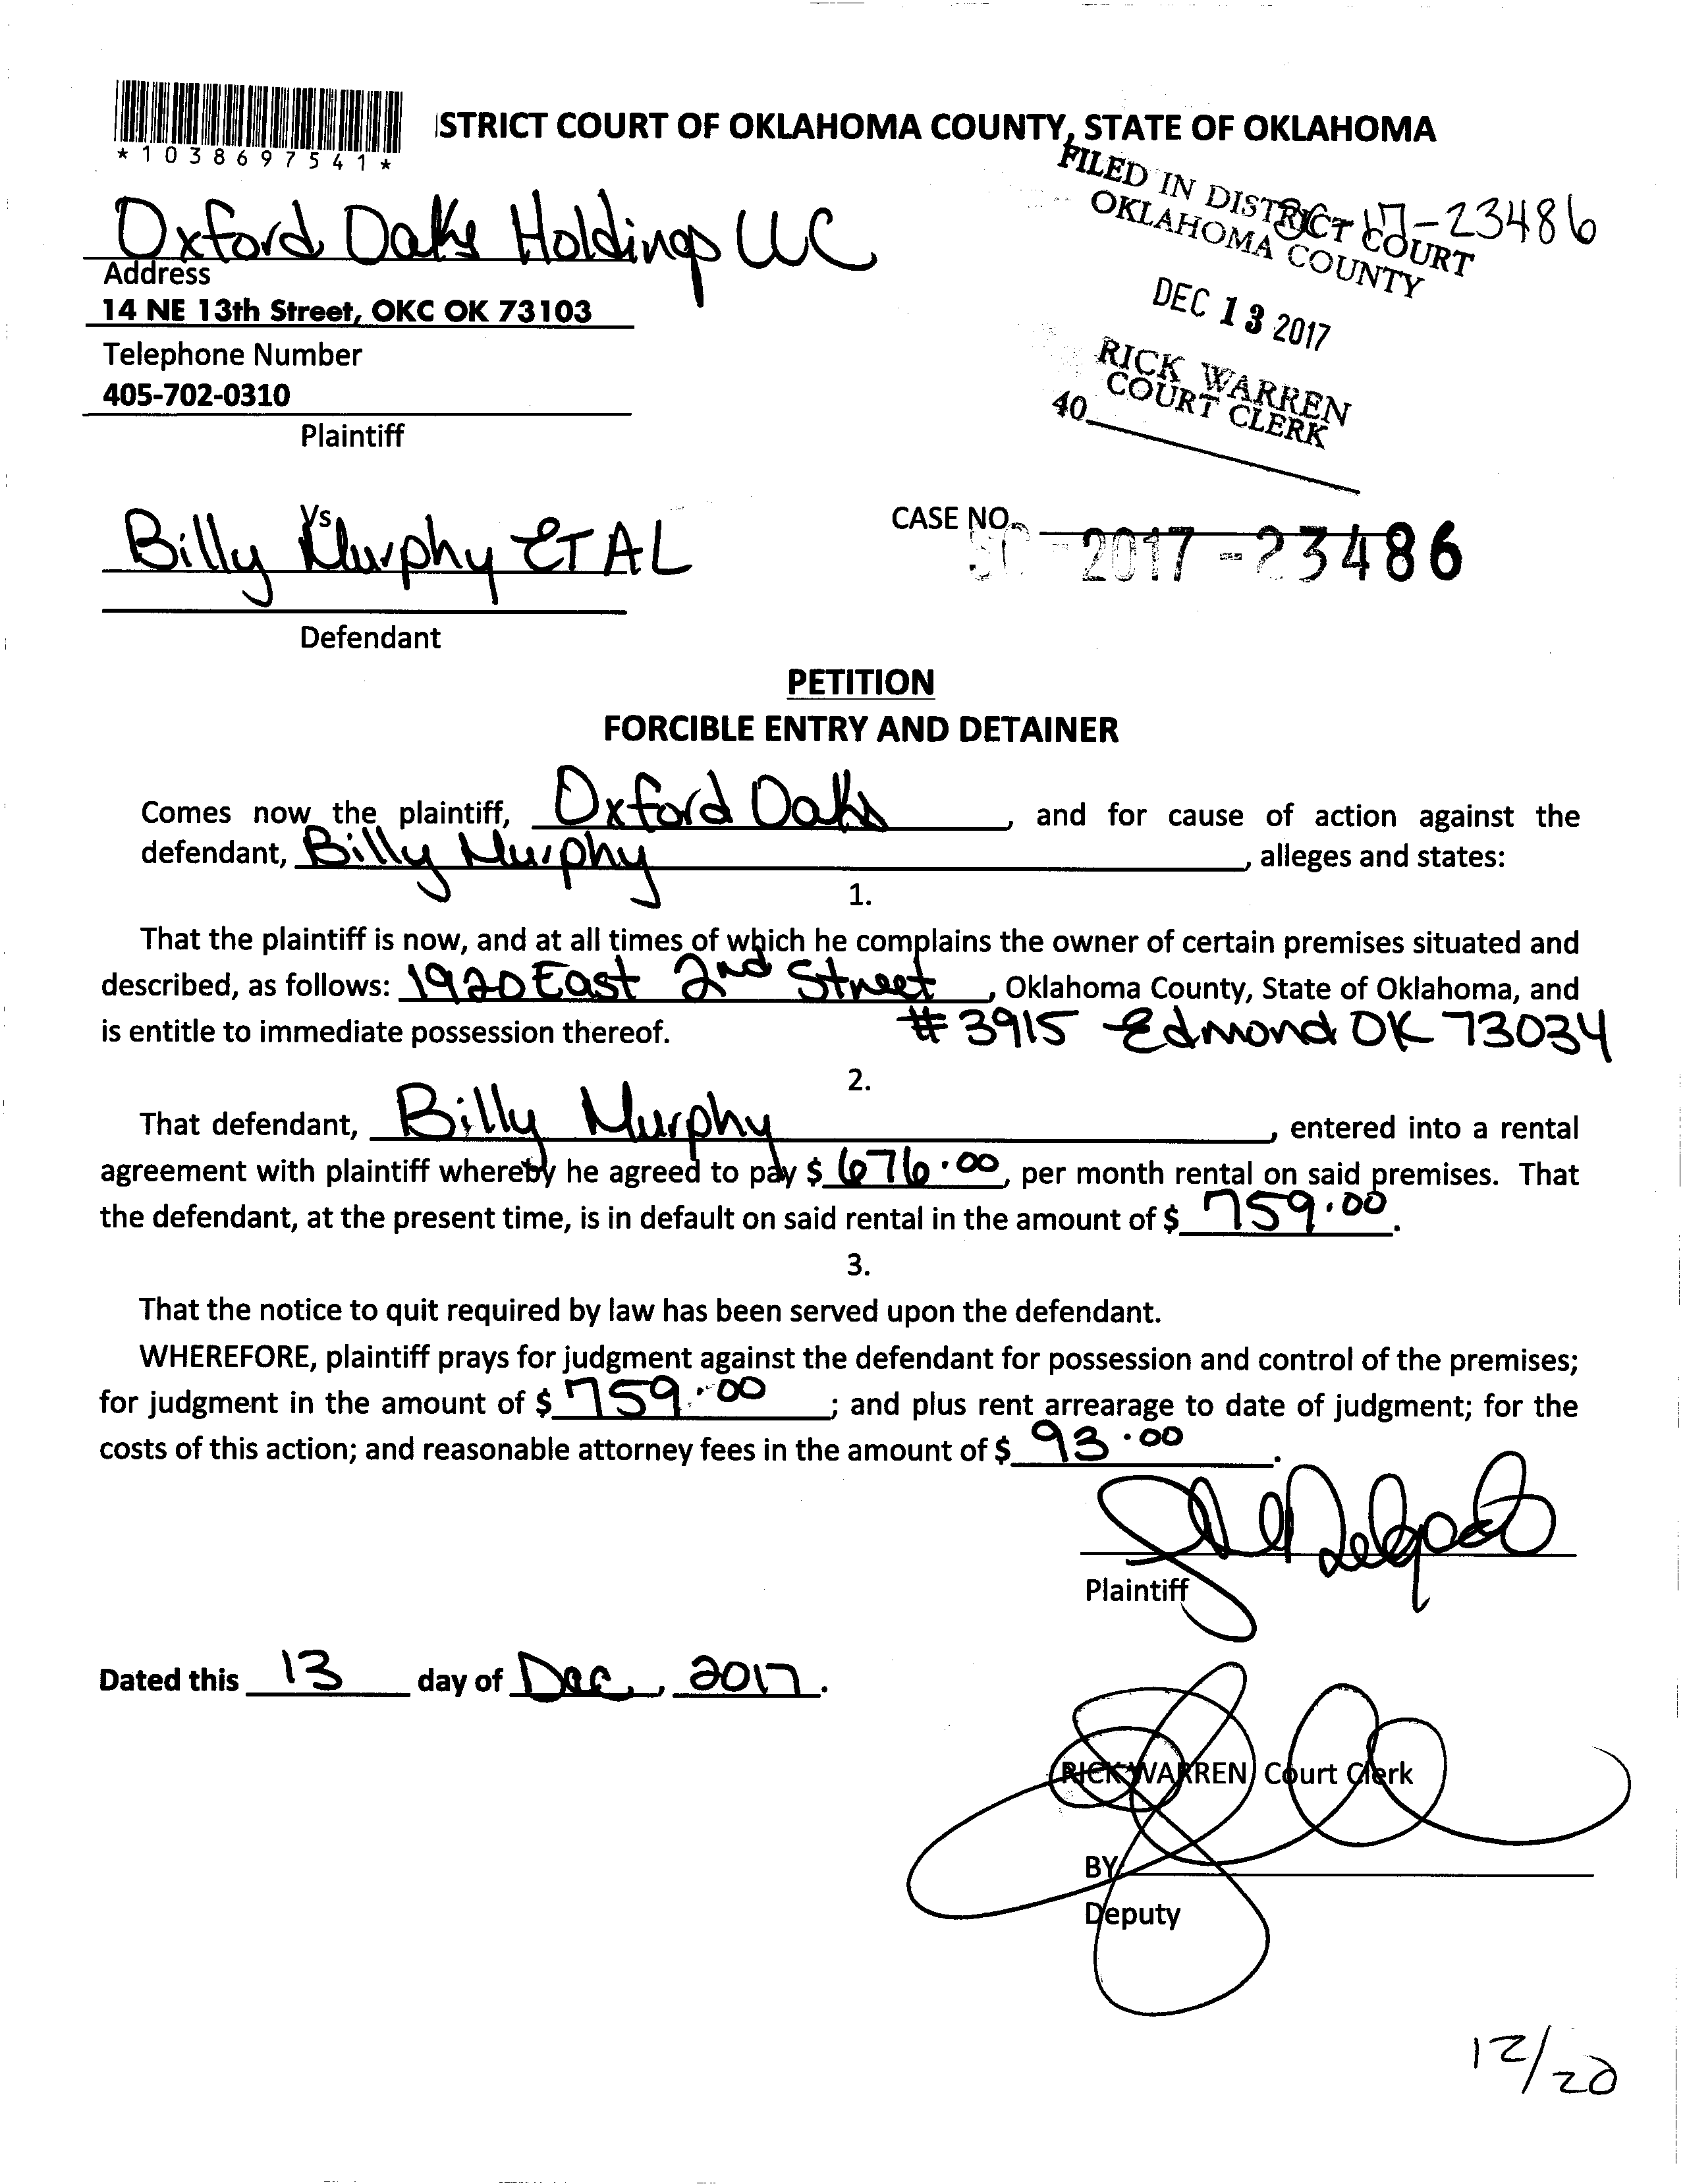 *1038697541*
STRICT COURT OF OKLAHOMA COUNTY, STATE OF OKLAHOMA
FILED IN DISTRICT COURT
OKLAHOMA COUNTY
SC 17-23486
DEC 13 2017
RICK WARREN
COURT CLERK
40
Oxford Oaks Holdings LLC
Address
14 NE 13th Street, OKC OK 73103
Telephone Number
405-702-0310
Plaintiff
Vs
Billy Murphy ET AL
Defendant
CASE NO.
SC - 2017 - 23486
PETITION
FORCIBLE ENTRY AND DETAINER
Comes now the plaintiff, Oxford Oaks, and for cause of action against the
defendant, Billy Murphy, alleges and states:
1.
That the plaintiff is now, and at all times of which he complains the owner of certain premises situated and
described, as follows: 1920 East 2nd Street, Oklahoma County, State of Oklahoma, and
is entitle to immediate possession thereof. #3915 Edmond OK 73034
2.
That defendant, Billy Murphy, entered into a rental
agreement with plaintiff whereby he agreed to pay $ 676.00, per month rental on said premises. That
the defendant, at the present time, is in default on said rental in the amount of $ 759.00.
3.
That the notice to quit required by law has been served upon the defendant.
WHEREFORE, plaintiff prays for judgment against the defendant for possession and control of the premises;
for judgment in the amount of $ 759.00; and plus rent arrearage to date of judgment; for the
costs of this action; and reasonable attorney fees in the amount of $ 93.00.
Plaintiff
Dated this 13 day of Dec, 2017.
RICK WARREN Court Clerk
BY
Deputy
12/20